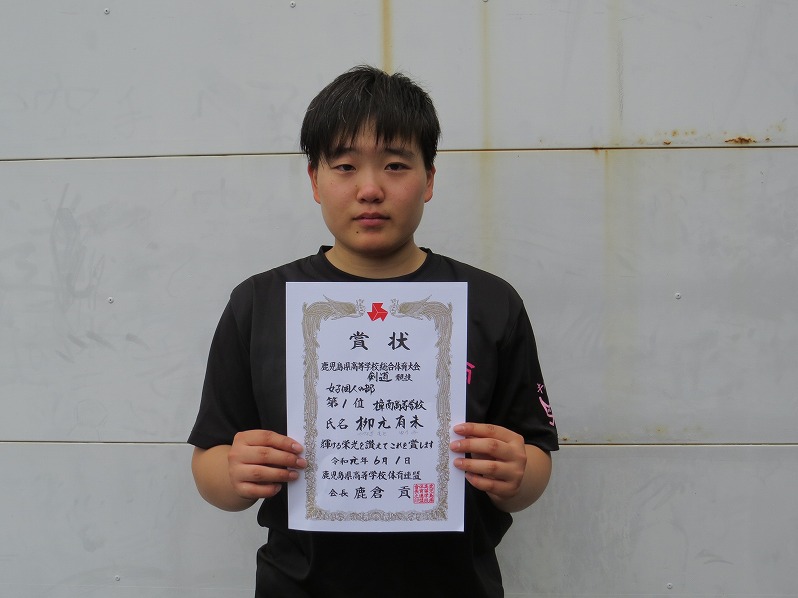 賞状
鹿児島県高等学校総合体育大会
剣道 競技
女子個人の部
第1位 樟南高等学校
氏名 柳元有未
輝ける栄光を讃えてこれを賞します
令和元年6月1日
鹿児島県高等学校体育連盟
会長 鹿倉 貢